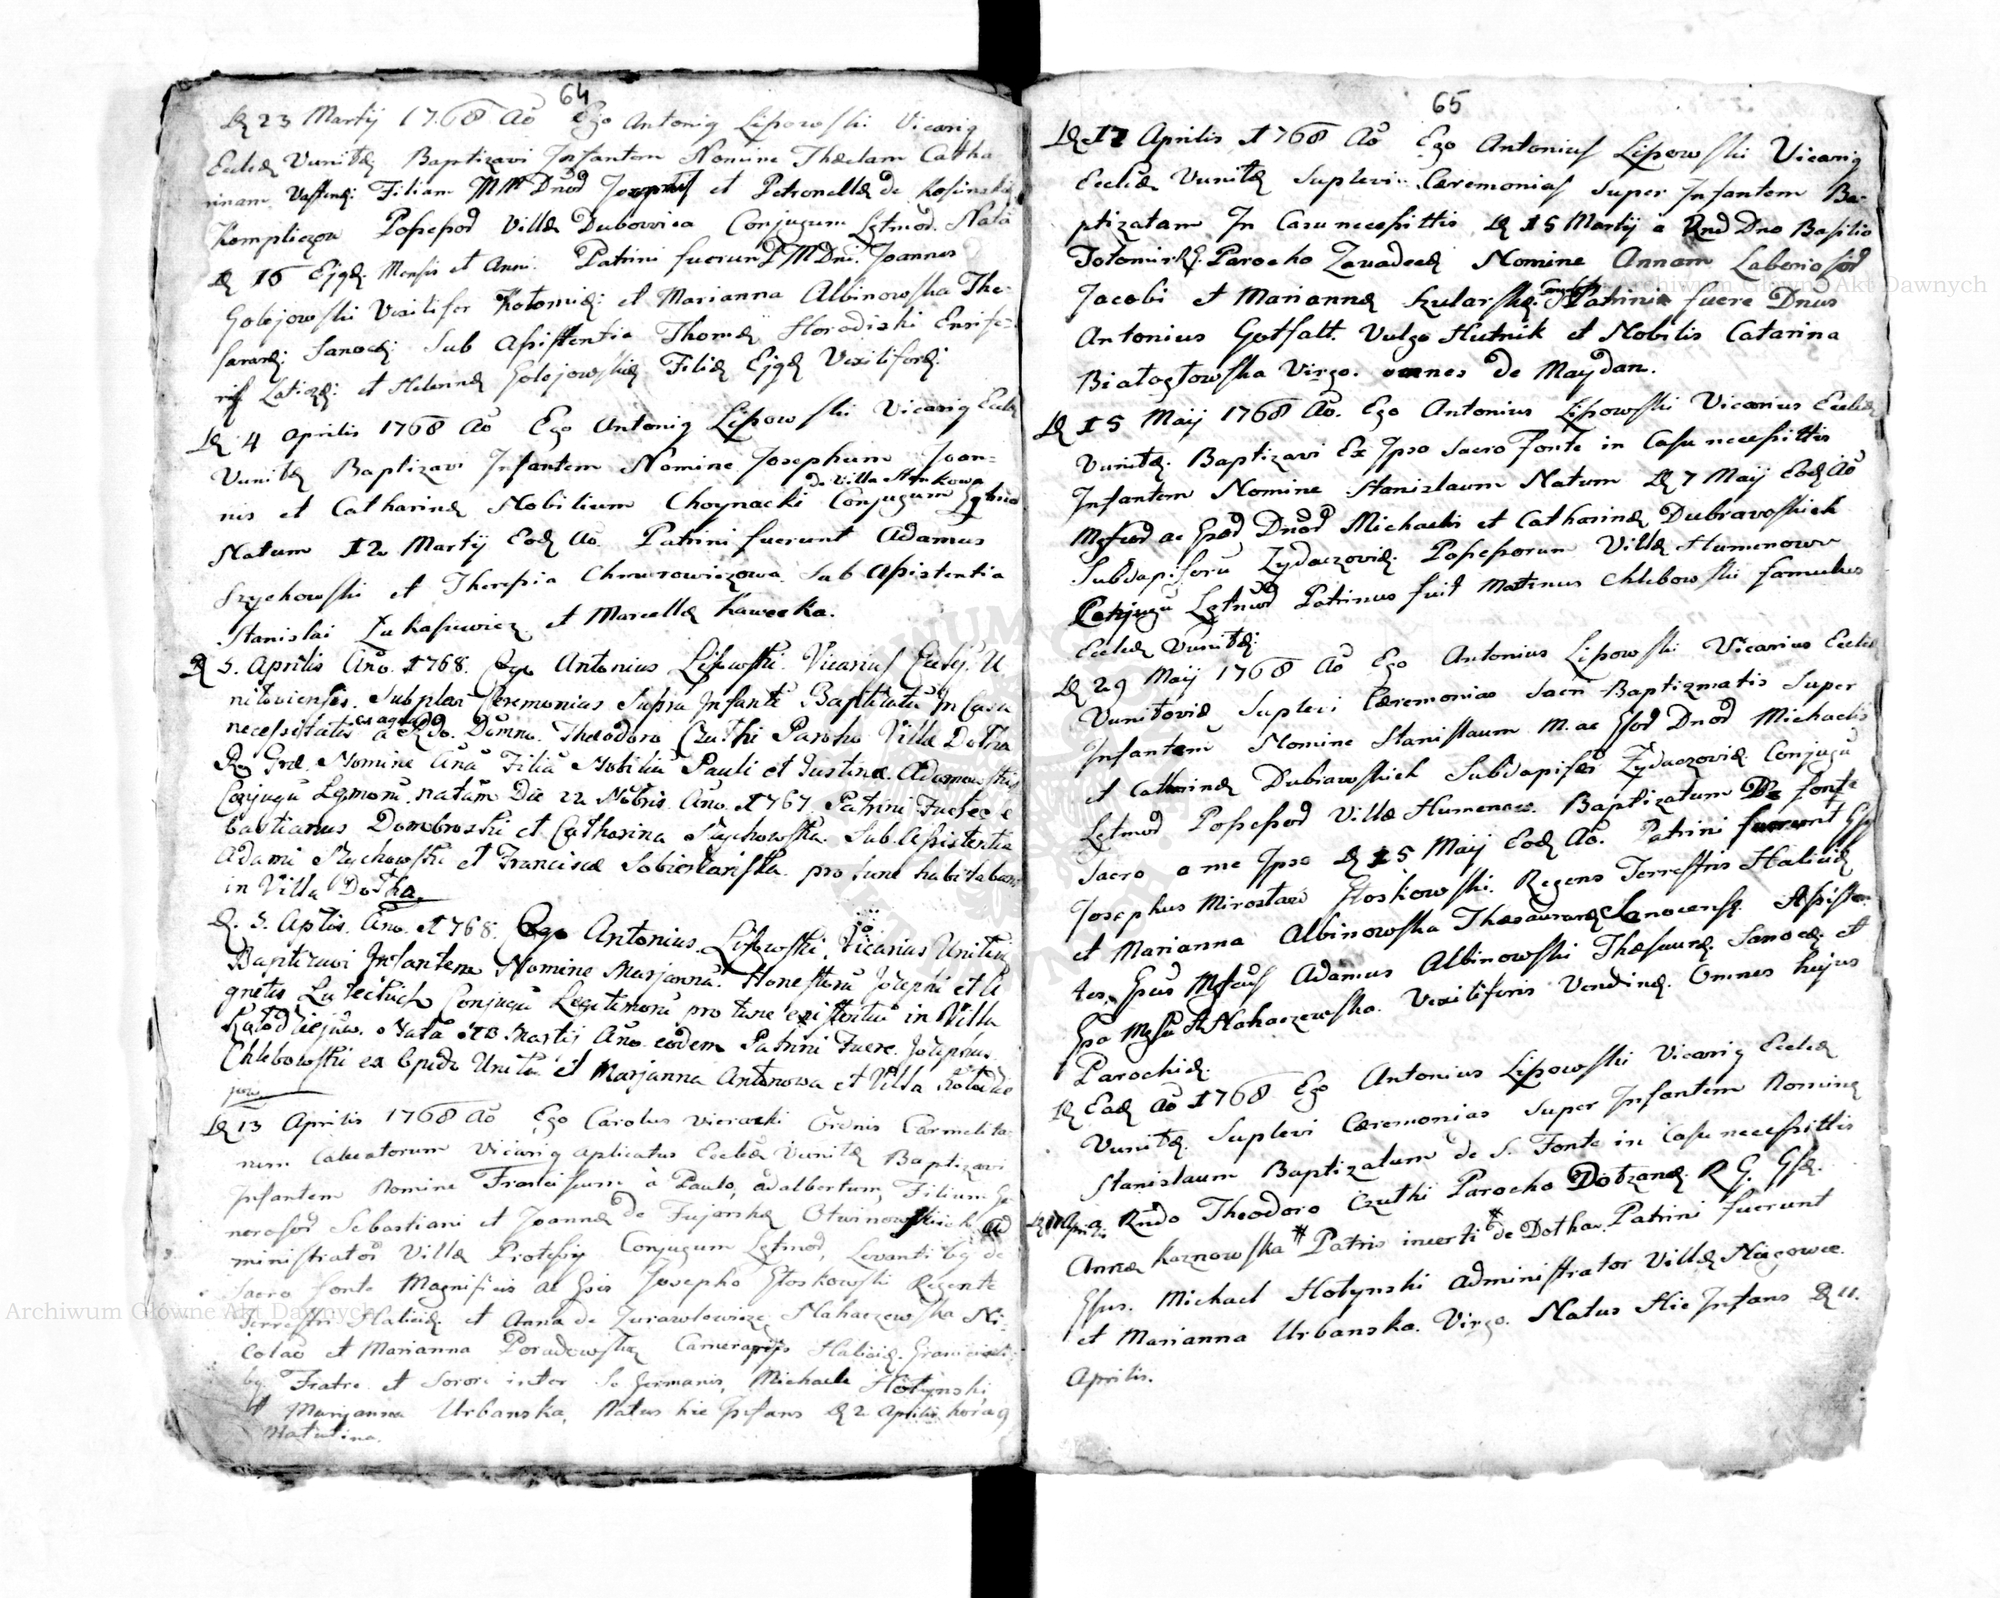 64
D 23 Martij 1768 Ao Ego Antonig Lipowski Vicarig
Eccliæ Vunitæ Baptizavi Infantem Nomine Thæclam Catha
rinam Filiam MM Dnod Josephi et Petronellæ de Kosinskie
Kompliczow Possessod Villæ Dubowica Conjugum Lgtmod. Nata
D 16 Ejqd. Mensis et Anni. Patrini fuerunt M Dni. Joannes
Golejowski Vexilifer Kołomiæ: et Marianna Albinowska The-
saurari: Sanocei Sub Assistentia Thomæ Horodiski Ensife-
ris Laticzæ: et Helennæ Golejowskiæ Filiæ Ejqd Vexiliferi
D 4 Aprilis 1768 Ao Ego Antonig Lipowski Vicarig Eccliæ
Vunitæ Baptizavi Infantem Nomine Josephum Joan=
de Villa Stankowa
nis et Catharinæ Nobilium Choynacki Conjugum Lgtmod
Natum 12 Martij Eod Ao Patrini fuerunt Adamus
Szychowski et Theresia Chmurowiczowa Sub Assistentia
Stanislai Łukasiewicz et Marcellæ Kawecka.
D 5. Aprilis Ano. 1768. Ego Antonius Lipowski. Vicarius Eccliæ. U
nitoviensis. Subplevi Ceremonias Supra Infantē Baptizatū In Casu
ex aqua
necessitatis a Rdo. Domno. Theodoro Czuthi Paroho Villæ Dotha
R. Græ. Nomine Anā Filiā Nobiliū Pauli et Justinæ Adamowskich
Conjugū Lgmorū. natam Die 22 Nobris. Ano. 1767. Patrini Fuere Se
bastianus Dombroski et Catharina Szychowska. Sub Assistentia
Adami Szychowski et Franciscæ Sobieskariska. pro tunc habitaban
in Villa Dotha.
D. 5. Aplis. Ano. 1768. Ego Antonius Lipowski. Vicarius Uniten
Baptizavi Infantem Nomine Marjannā. Honestorū Josephi et A
gnetis Luteckich Conjugū Legitimorū pro tunc existentiū in Villa
Kołodziejów. Natā 18. Martij Ano. eodem Patrini Fuere. Josephus
Chlebowski ex Opido Unita et Marjanna Antonowa et Villa Kołodzie
jow
D 13 Aprilis 1768 Ao Ego Carolus Vieracki Ordinis Carmelita-
num Calceatorum Vicarig aplicatus Eccliæ Vunitæ Baptizavi
Infantem Nomine Franciscum à Paulo, Adalbertum, Filium Ge
nerosod Sebastiani et Joannæ de Fujarskæ Otwinowskich Ad
ministratod Villæ Protesy Conjugum Lgtmod, Levantibg de
Sacro fonte Magnificis ac Gsis Josepho Głoskowski Regente
Terrestri Halicię et Anna de Zurawlowicze Nahaczewska Ni-
colao et Marianna Poradowskæ Camerarijs Halicię Graniciali
bg Fratre et Sorore inter Se Germanis, Michaele Hołynski
et Maryanna Urbanska, Natus hic Infans D 2 Aprilis hora 9
Matutina.
65
D 17 Aprilis 1768 Ao Ego Antonius Lipowski Vicarig
Eccliæ Vunitæ Suplevi Cæremonias Super Infantem Ba-
ptizatam In Casu necessittis D 15 Martij a Rnd Dno Basilio
Parocho Zavadecæ Nomine Annam Laboriosod
Jacobi et Mariannæ Szularskæ. Patrini fuere Dnus
Antonius Gotfalt. Vulgo Hutnik et Nobilis Catarina
Białogłowska Virgo. omnes de Maydan.
D 15 Maij 1768 Ao. Ego Antonius Lipowski Vicarius Eccliæ
Vunitæ. Baptizavi Ex Ipso Sacro Fonte in Casu necessittis
Infantem Nomine Stanislaum Natum D 7 Maij Eod Ao
Mgfcod ac Gsod Dnod Michaelis et Catharinæ Dubrawskich
Subdapiferū Zydaczoviæ. Possessorum Villæ Humenowa
Conjugū Lgtmod Patrinus fuit Matinus Chlebowski famulus
Eccliæ Vunitæ:
D 29 Maij 1768 Ao Ego Antonius Lipowski Vicarius Eccliæ
Vunitoviæ Suplevi Cæremonias Sacri Baptizmatis Super
Infantem Nomine Stanislaum M. ac Gsod Dnod Michaelis
et Catharinæ Dubrawskich Subdapiferi Zydaczoviæ Conjugū
Lgtmod Possessod Villæ Humenow. Baptizatum De fonte
Sacro a me Ipso D 15 Maij Eod Ao. Patrini fuerunt Gsg
Josephus Mirosław Głoskowski. Regens Terrestris Haliciæ
et Marianna Albinowska Thesaurariæ Sanocensg. Assisten
tes Gsus Mgfcus Adamus Albinowski Thesauræ Sanocæ et
Gsa Mgfca Nahaczewska. Vexiliferis Vendinæ. Omnes hujus
Parochiæ.
D Eod Ao 1768 Ego Antonius Lipowski Vicarig Eccliæ
Vunitæ Suplevi Cæremonias Super Infantem Nomine
Stanislaum Baptizatum de S. Fonte in Casu necessittis
D 11 Aprilis a Rndo Theodoro Czuthi Parocho Dołzanæ R G. Gsæ.
Annæ Kaznowska # Patris incerti # de Dotha. Patrini fuerunt
Gsus. Michael Hołynski Administrator Villæ Niegowce.
et Marianna Urbanska. Virgo. Natus Hic Infans D 11.
Aprilis.
Archiwum Główne Akt Dawnych
Archiwum Główne Akt Dawnych